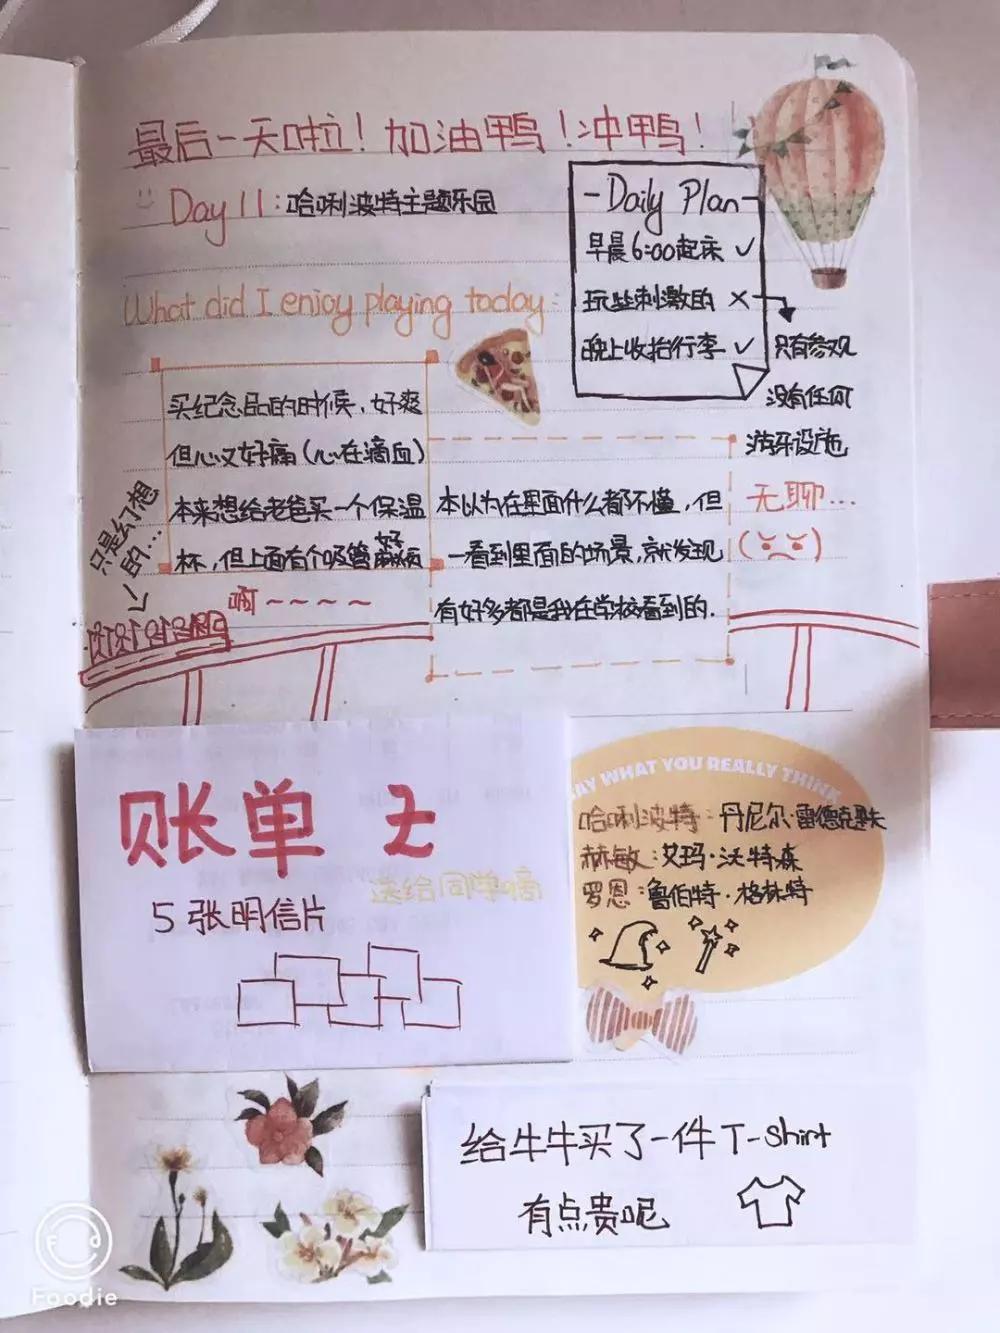 最后一天啦！加油鸭！冲鸭！
Day 11：哈唎波特主题乐园
-Daily Plan-
早晨6:00起床 ✓
玩些刺激的 ×
晚上收拾行李 ✓
只有参观
没有任何
游乐设施
无聊...
What did I enjoy playing today:
买纪念品的时候，好爽
但心又好痛（心在滴血）
本来想给老爸买一个保温
杯，但上面有个吸管好麻烦
本以为在里面什么都不懂，但
一看到里面的场景，就发现
有好多都是我在学校看到的.
只是幻想
的...
啊~~~~
账单
5张明信片
送给同学嘀
AY WHAT YOU REALLY THINK
哈唎波特：丹尼尔·雷德克里夫
赫敏：艾玛·沃特森
罗恩：鲁伯特·格林特
给牛牛买了一件T-shirt
有点贵呢
Foodie